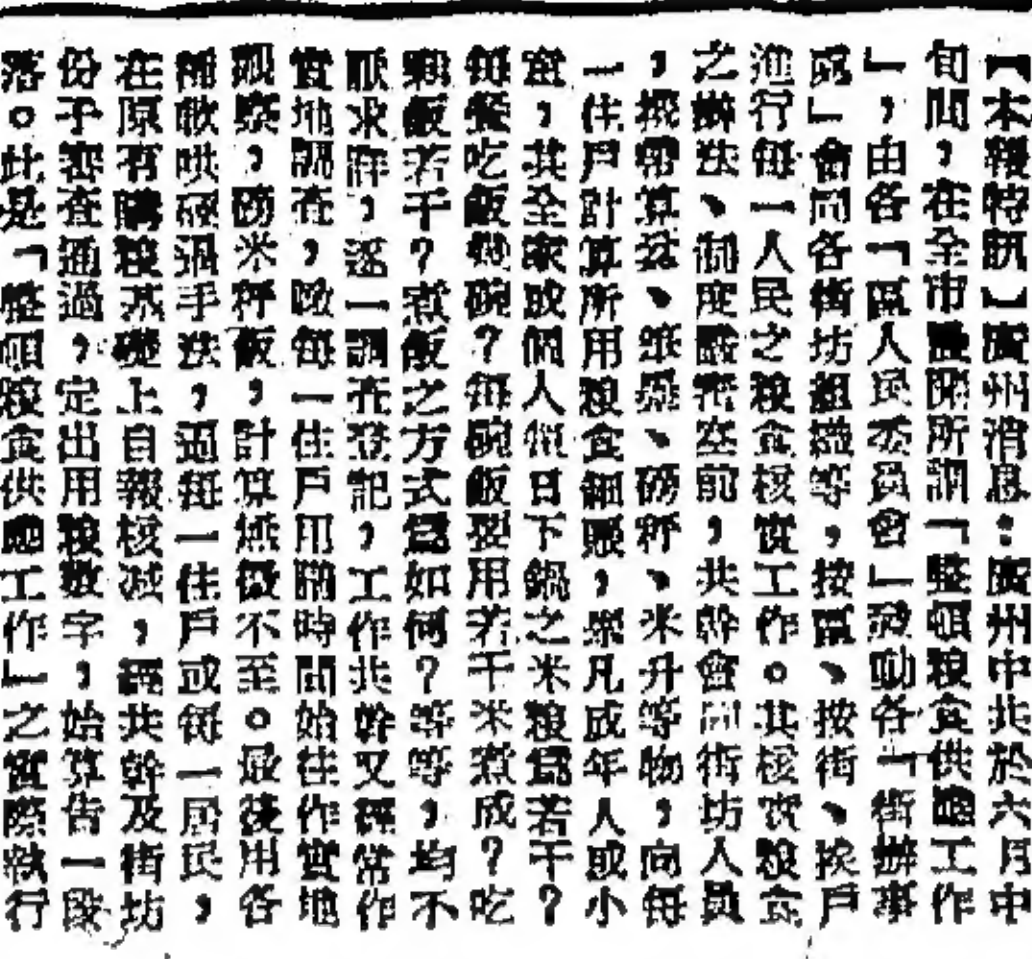 【本報特訊】廣州消息：廣州中共於六月中
旬間，在全市展開所謂「整頓粮食供應工作
」，由各「區人民委員會」發動各「街辦事
處」會同各街坊組織等，按區、按街、挨戶
進行每一人民之粮食核實工作。其核實粮食
之辦法、制度嚴密空前，共幹會同街坊人員
，携帶算盆、紙墨、磅秤、米升等物，向每
一住戶計算所用粮食細賬，凡成年人或小
童，其全家或個人每日下鍋之米粮爲若干？
每餐吃飯幾碗？每碗飯要用若干米煮成？吃
剩飯若干？煮飯之方式爲如何？等等，均不
厭求詳，逐一調查登記，工作共幹又經常作
實地調查，臨每一住戶用膳時間始往作實地
視察，磅米秤飯，計算無微不至。最後用各
種軟哄硬逼手法，逼每一住戶或每一居民，
在原有購粮基礎上自報核减，經共幹及街坊
份子審查通過，定出用粮数字，始算告一段
落。此是「整頓粮食供應工作」之實際執行